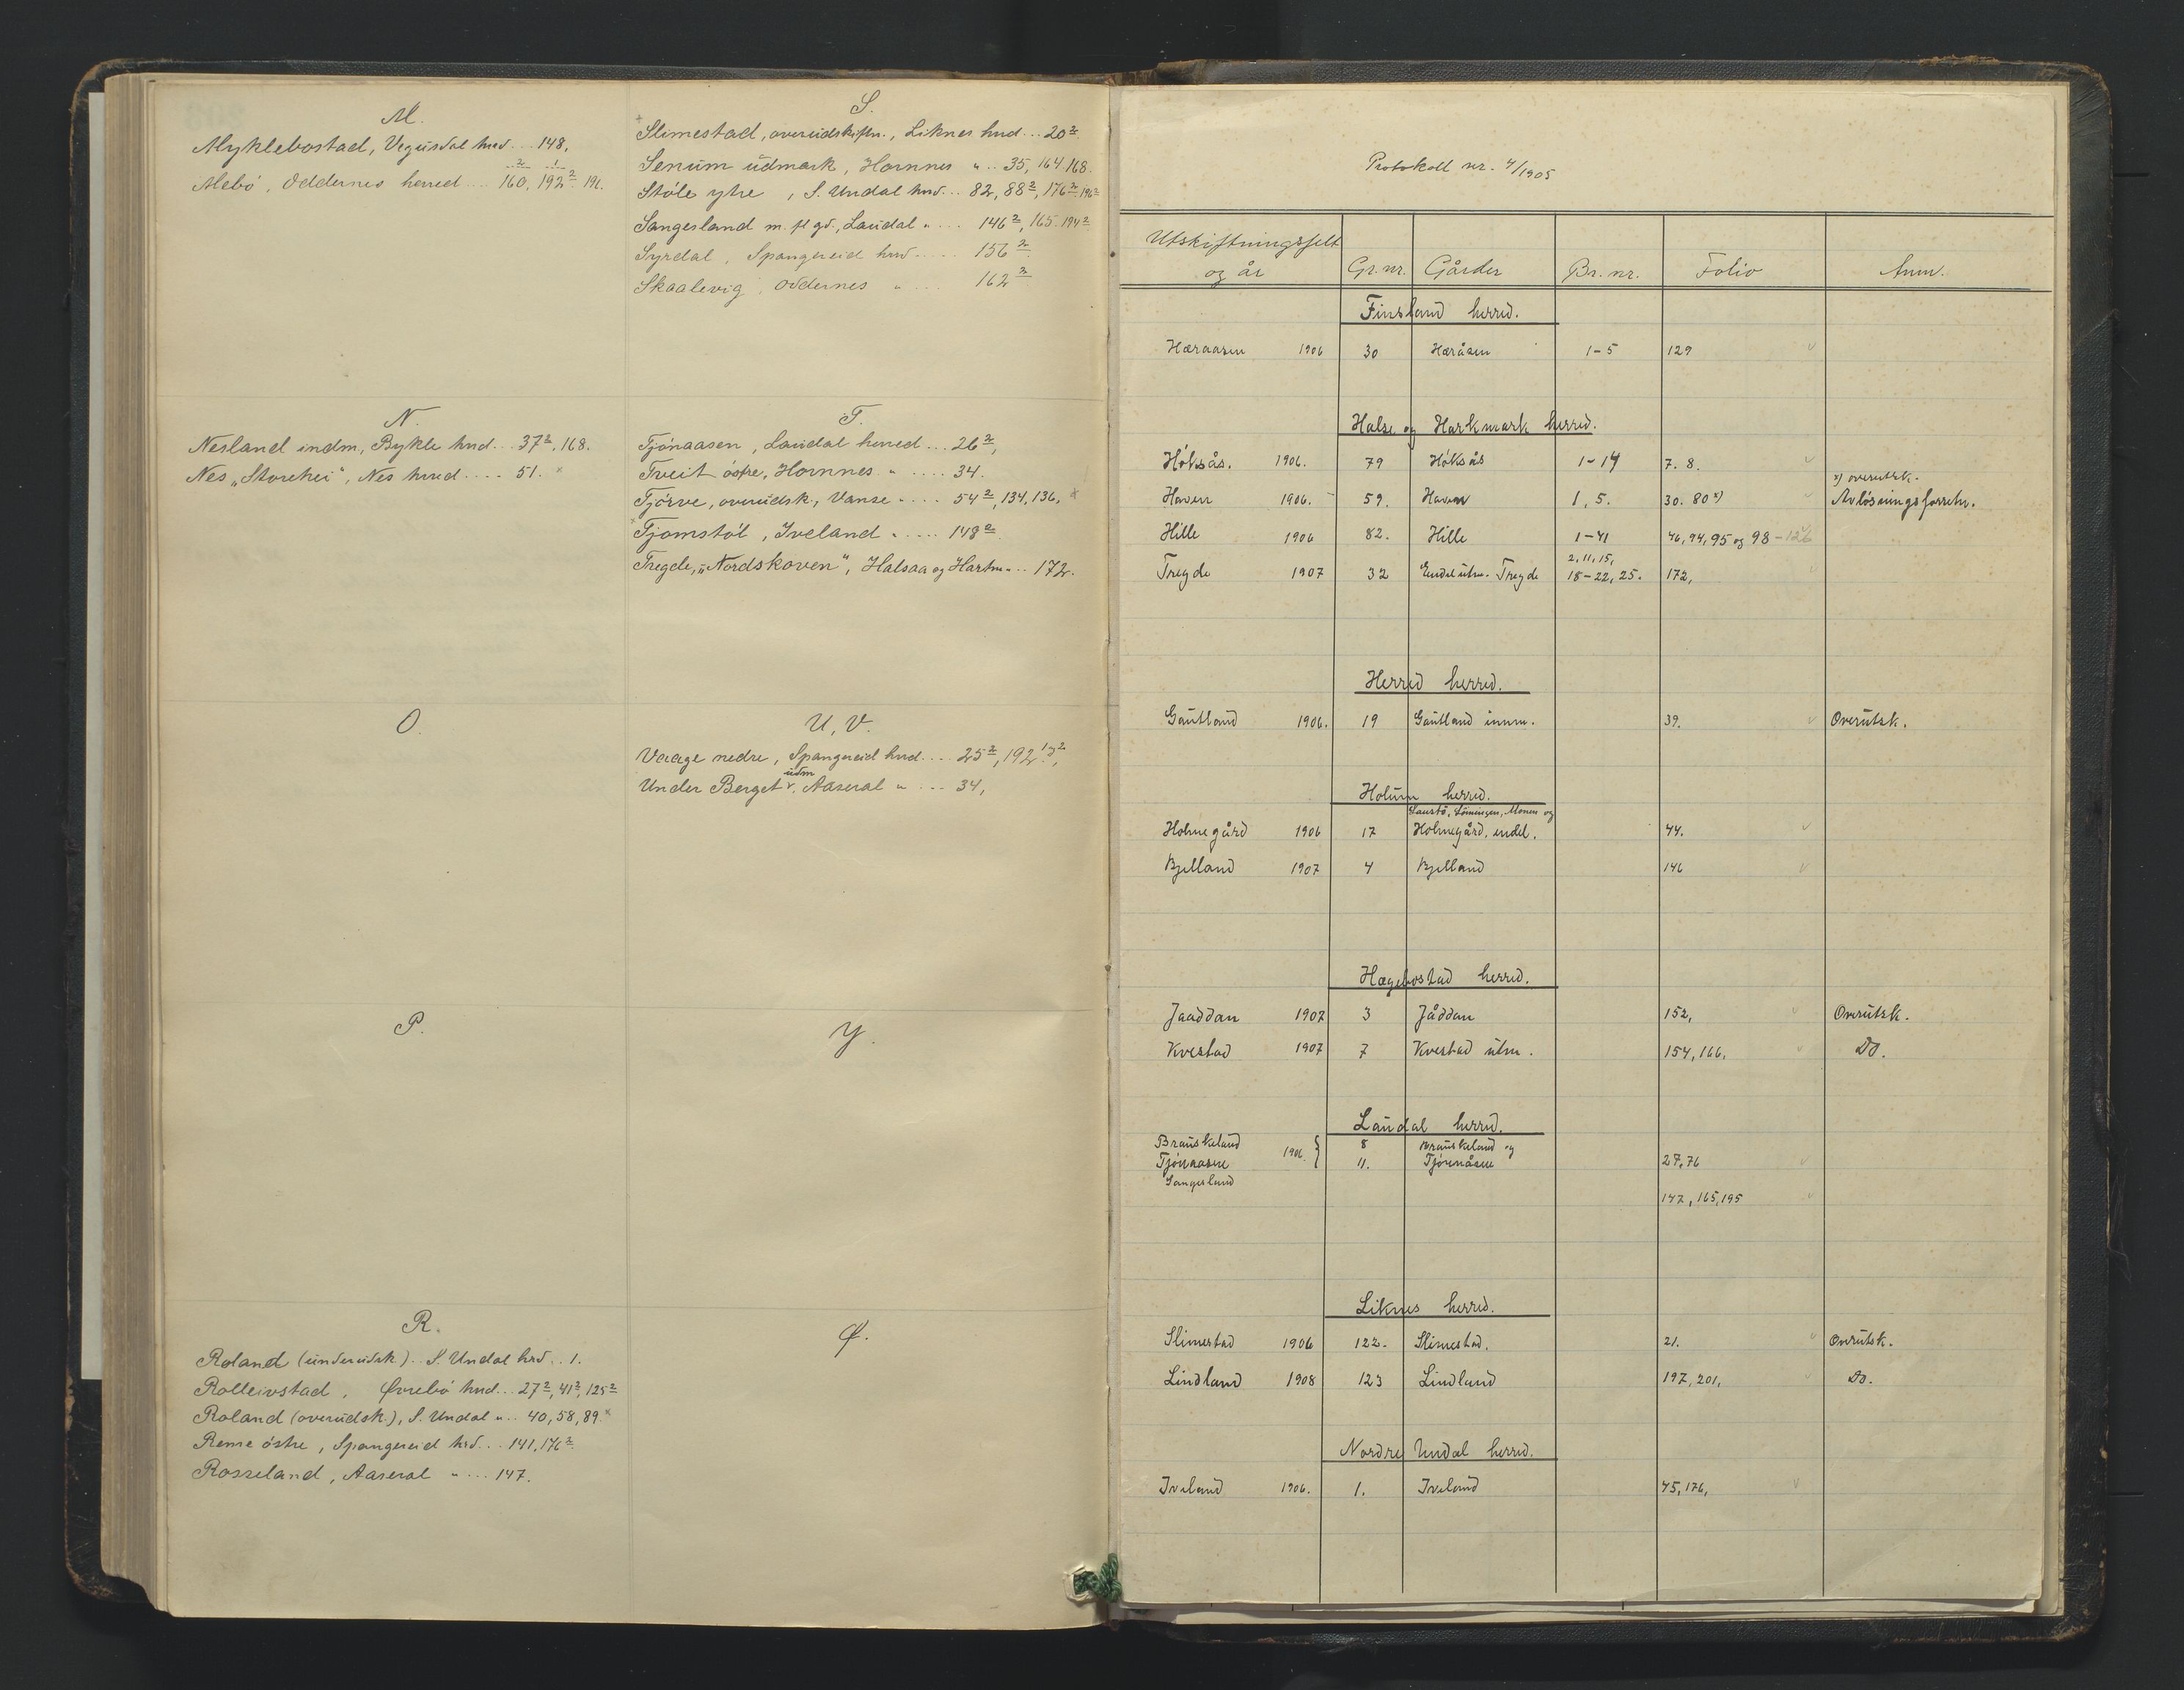 M.
Myklebostad, Vegusdal hred... 148.
Mebö, Oddernes herred... 160, 192 2/. 196.
N.
Nesland indm, Bykle hred... 37 2/, 168.
Nes „Storehei“, Nes hred.... 51. x
O.
P.
R.
Roland (underudsk.).. S. Undal hrd.. 1.
Rolleivstad, Øvrebö hred... 27 2/, 41 2/, 125 2/
Roland (overudsk.), S. Undal „.. 40, 58, 89. x
Reme östre, Spangereid hrd... 141, 176 2/.
Rosseland, Aaseral „... 147.
S.
Slimestad, overudskiftn., Liknes hred... 20 2/
Senum udmark, Hornnes „.. 35, 164. 168.
Støle ytre, S. Undal hred... 82, 88 2/, 176 2/. 196 2/
Sangesland m. fl gd., Laudal „.... 146 2/, 165. 194 2/
Syrdal, Spangereid hred..... 156 2/.
Skaalevig, Oddernes „.... 162 2/
T.
Tjönaasen, Laudal herred... 26 2/,
Tveit östre, Hornnes „..... 34.
Tjörve, overudsk., Vanse „.... 54 2/, 134, 136, x
Tjomstöl, Iveland „..... 148 2/
Tregde, „Nordskoven“, Halsaa og Hartm „... 172.
U, V.
Vaage nedre, Spangereid hred.... 25 2/, 192
Under Berget udm, Aaseral „.... 34,
Y.
Ø.
Protokoll nr. 4/1905
Utskiftningsfelt og år Gr. nr. Gårder Br. nr. Folio Anm.
Finsland herred.
Hæraasen 1906 30 Hæråsen 1-5 129
Halse og Harkmark herred.
Höksås. 1906. 79 Höksås 1-14 7. 8.
x) overutsk.
Haven 1906. 59. Haven 1, 5. 30. 80 x) Avlösningsforretn.
Hille 1906 82. Hille 1-41 46, 94, 95 og 98-126
2, 11, 15,
Tregde 1907 32 Endel utm. Tregde 18-22, 25. 172,
Herred herred.
Gautland 1906. 19 Gautland innm. 39. Overutsk.
Holum herred.
Laustö, Löningen, Monen og
Holmegård 1906 17 Holmegård, endel. 44.
Bjelland 1907 4 Bjelland 146
Hægebostad herred.
Jaaddan 1907 3 Jåddan 152, Overutsk.
Kvestad 1907 7 Kvestad utm. 154, 166, Do.
Laudal herred.
Brauskeland 8 Brauskeland og
Tjönaasen 1906. } 11. Tjönnåsen 27, 76
Sangesland
147, 165, 195
Liknes herred.
Slimestad 1906 122. Slimestad. 21. Overutsk.
Lindland 1908 123 Lindland 197, 201, Do.
Nordre Undal herred.
Iveland 1906. 1. Iveland 45, 176,